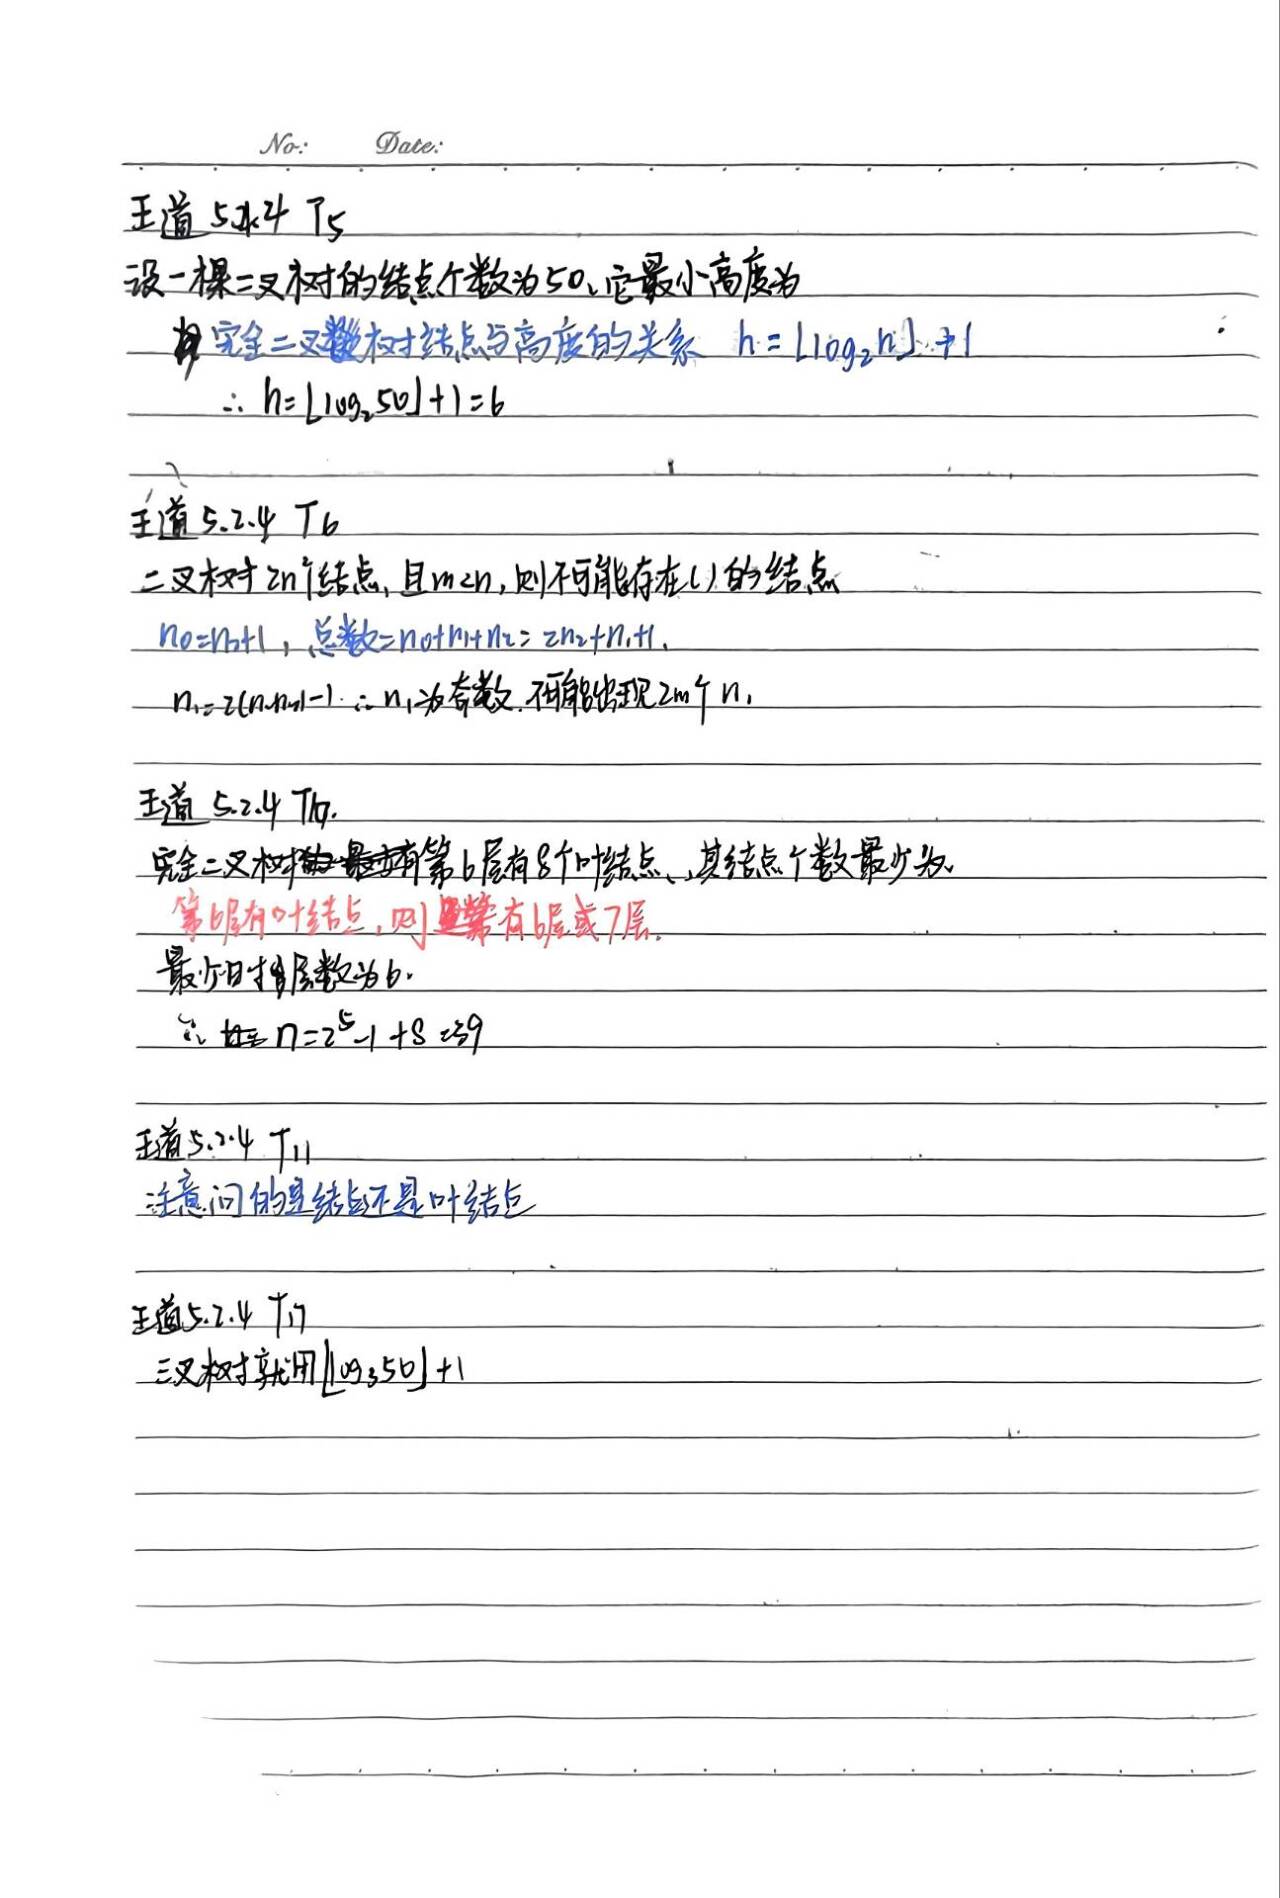 No: Date:
王道 5.2.4 T5
设一棵二叉树的结点个数为50、它最小高度为
完全二叉树结点与高度的关系 h=⌊log₂n⌋+1
∴ h=⌊log₂50⌋+1=6
王道 5.2.4 T6
二叉树有2n个结点,且m<n,则不可能存在()的结点
n₀=n₂+1,总数=n₀+n₁+n₂=2n₂+n₁+1.
n₁=2(n-n₂)-1 ∴n₁为奇数.不可能出现2m个n₁
王道 5.2.4
完全二叉树有第6层有8个叶结点、,其结点个数最少为.
第6层有叶结点,则有6层或7层.
最少时层数为6.
∴ n=2⁵-1+8=39
王道 5.2.4 T11
注意问的是结点还是叶结点
王道 5.2.4 T17
三叉树就用⌊log₃50⌋+1